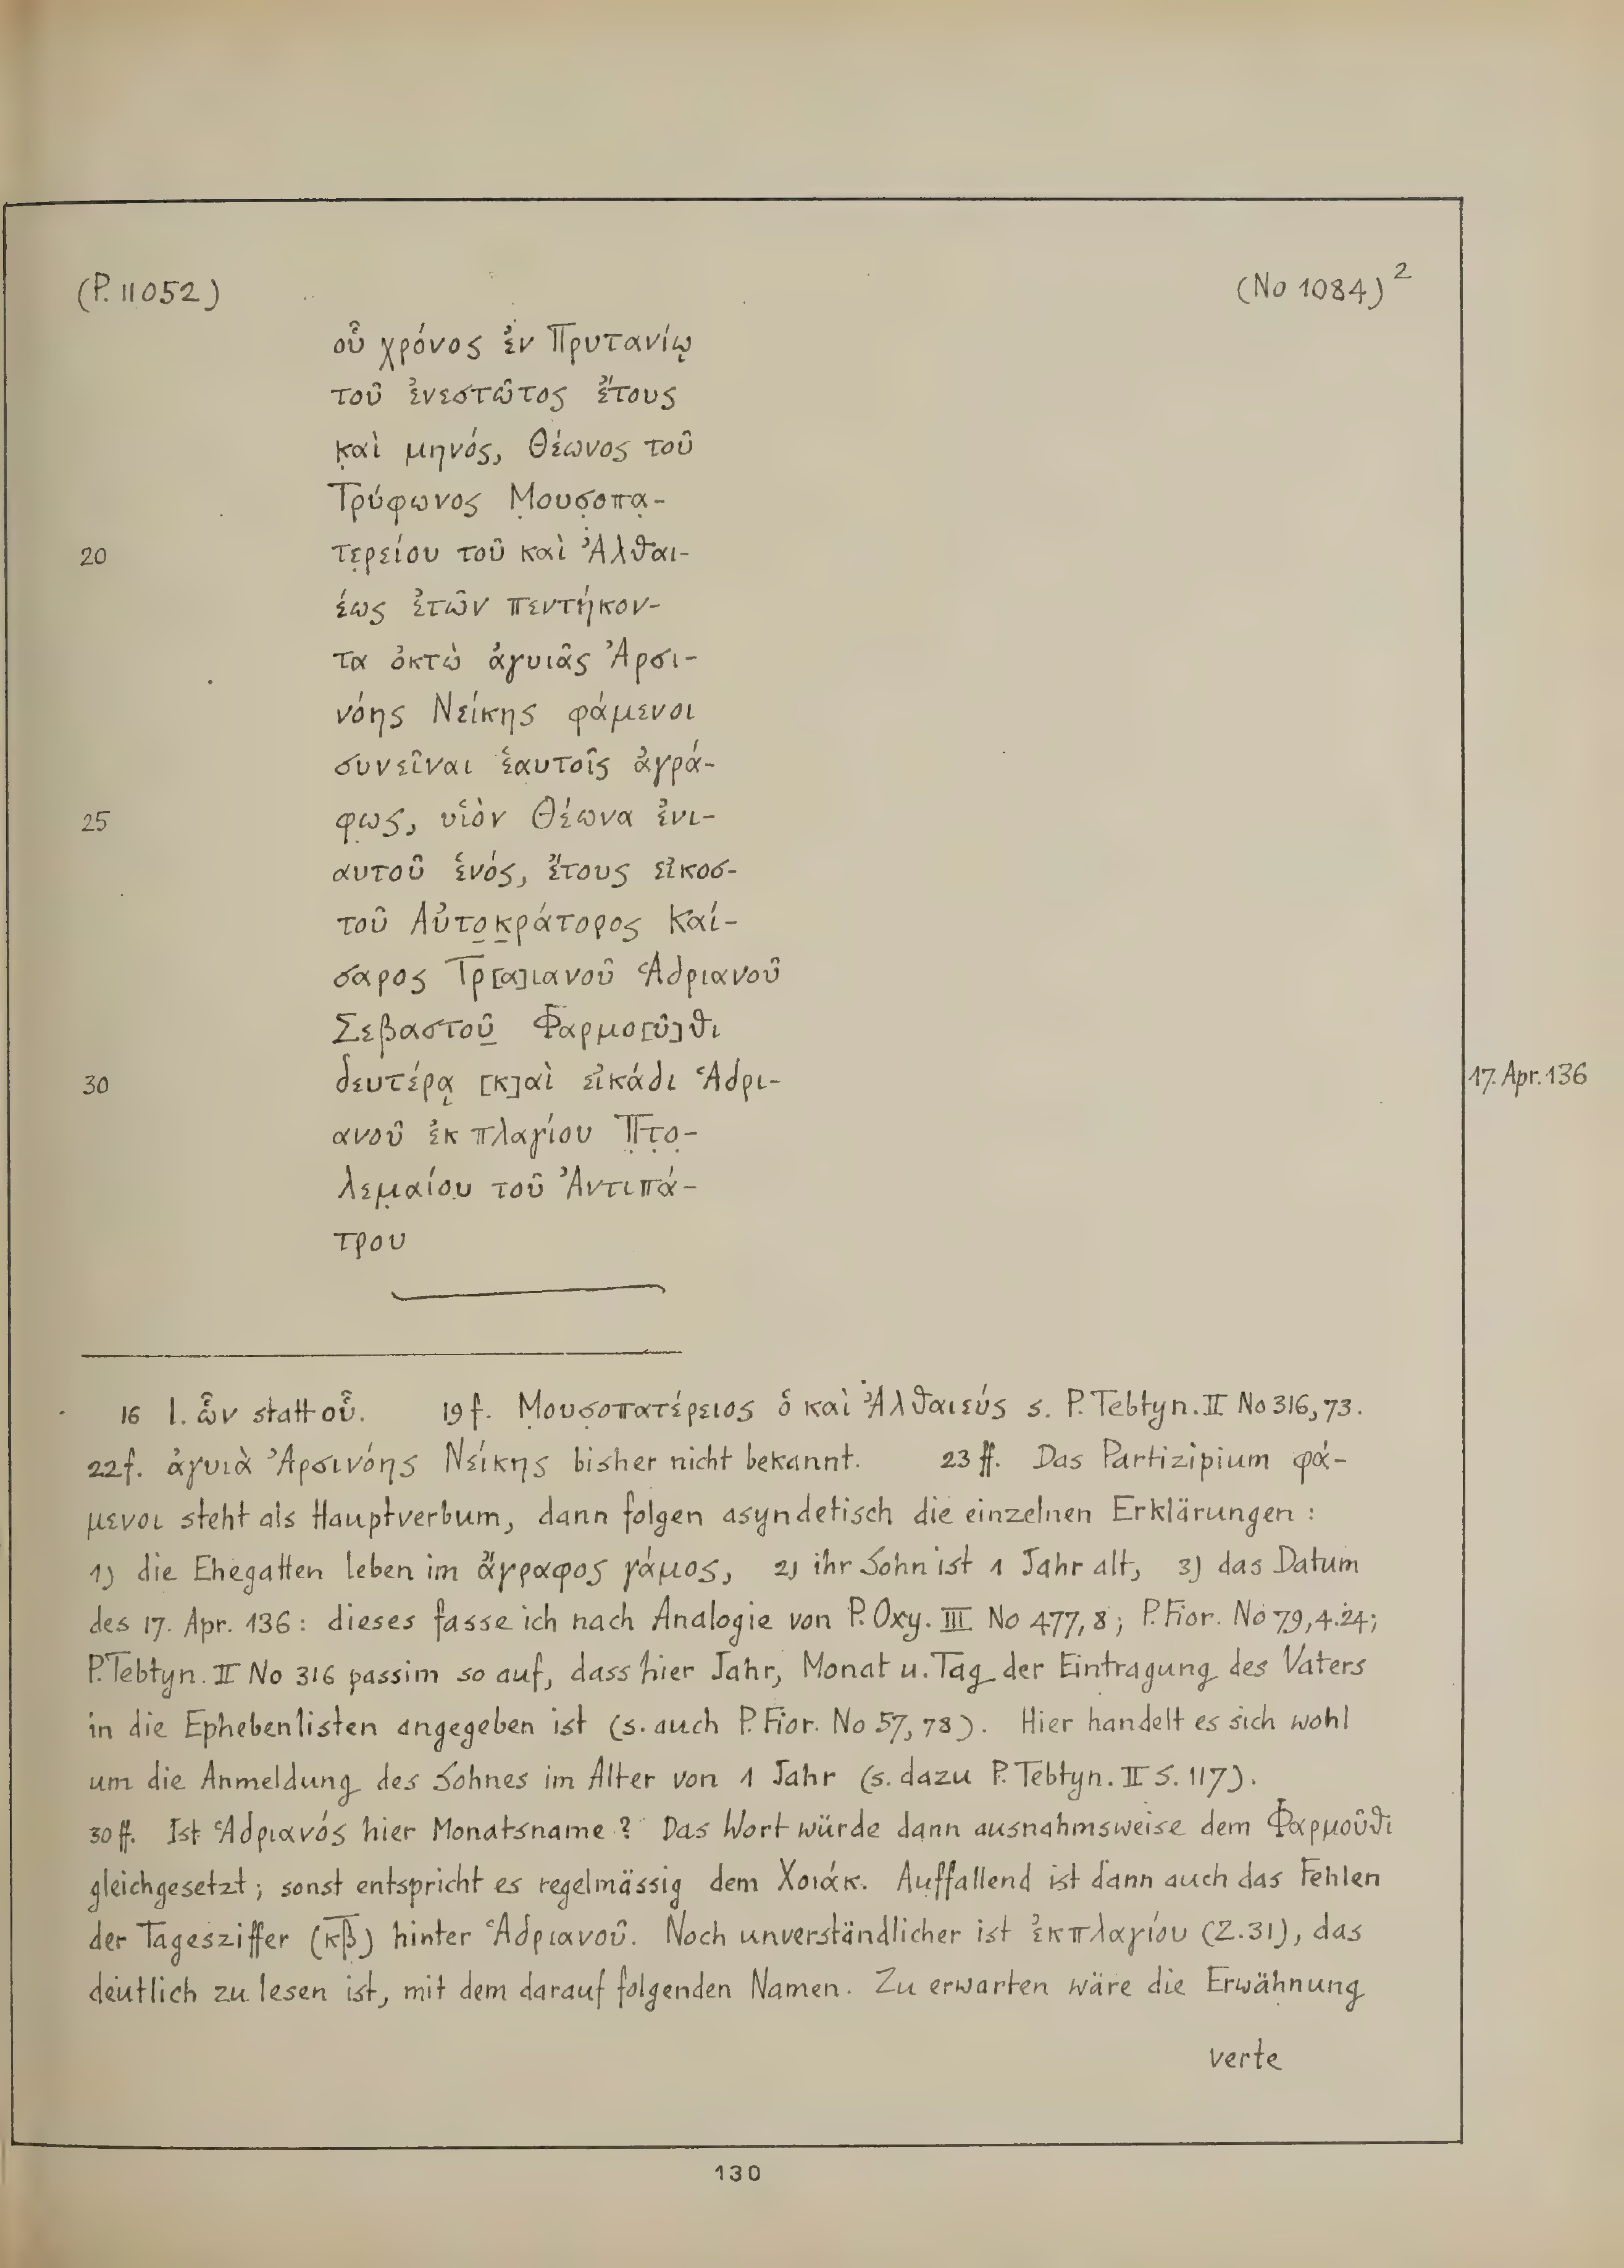 (P. 11052) (No 1084)²
οὗ χρόνος ἐν Πρυτανίῳ
τοῦ ἐνεστῶτος ἔτους
κ̣αὶ μηνός, Θέωνος τοῦ
Τρύφωνος Μ̣ουσ̣οπα̣-
20 τε̣ρείου τοῦ καὶ Ἀλθαι-
έως ἐτῶν πεντήκον-
τα ὀκτὼ ἀγυιᾶς Ἀρσι-
νόης Νείκης φάμενοι
συνεῖναι ἑαυτοῖς ἀγρά-
25 φω̣ς, υἱὸν Θέωνα ἐνι-
αυτοῦ ἑνός, ἔτους εἰκοσ-
τοῦ Αὐτο̲κ̲ράτορος Καί-
σαρος Τρ[α]ιανοῦ Ἁδριανοῦ
Σεβαστοῦ̲ Φαρμο[ῦ]θι
30 δευτέρᾳ [κ]αὶ εἰκάδι Ἁδρι- 17. Apr. 136
ανοῦ ἐκ πλαγίου Π̣τ̣ο̣-
λεμ̣αίο̣υ τοῦ Ἀντιπά-
τρου
16 l. ὧν statt οὗ. 19 f. Μ̣ουσ̣οπατέρειος ὁ καὶ Ἀλθαιεύς s. P. Tebtyn. II No 316, 73.
22 f. ἀγυιὰ Ἀρσινόης Νείκης bisher nicht bekannt. 23 ff. Das Partizipium φά-
μενοι steht als Hauptverbum, dann folgen asyndetisch die einzelnen Erklärungen :
1) die Ehegatten leben im ἄγραφος γάμος, 2) ihr Sohn ist 1 Jahr alt, 3) das Datum
des 17. Apr. 136 : dieses fasse ich nach Analogie von P. Oxy. III No 477, 8 ; P. Fior. No 79, 4.24 ;
P. Tebtyn. II No 316 passim so auf, dass hier Jahr, Monat u. Tag der Eintragung des Vaters
in die Ephebenlisten angegeben ist (s. auch P. Fior. No 57, 78). Hier handelt es sich wohl
um die Anmeldung des Sohnes im Alter von 1 Jahr (s. dazu P. Tebtyn. II S. 117).
30 ff. Ist Ἁδριανός hier Monatsname ? Das Wort würde dann ausnahmsweise dem Φαρμοῦθι
gleichgesetzt ; sonst entspricht es regelmässig dem Χοιάκ. Auffallend ist dann auch das Fehlen
der Tagesziffer (κ̅β̅) hinter Ἁδριανοῦ. Noch unverständlicher ist ἐκ πλαγίου (Z. 31), das
deutlich zu lesen ist, mit dem darauf folgenden Namen. Zu erwarten wäre die Erwähnung
verte
130